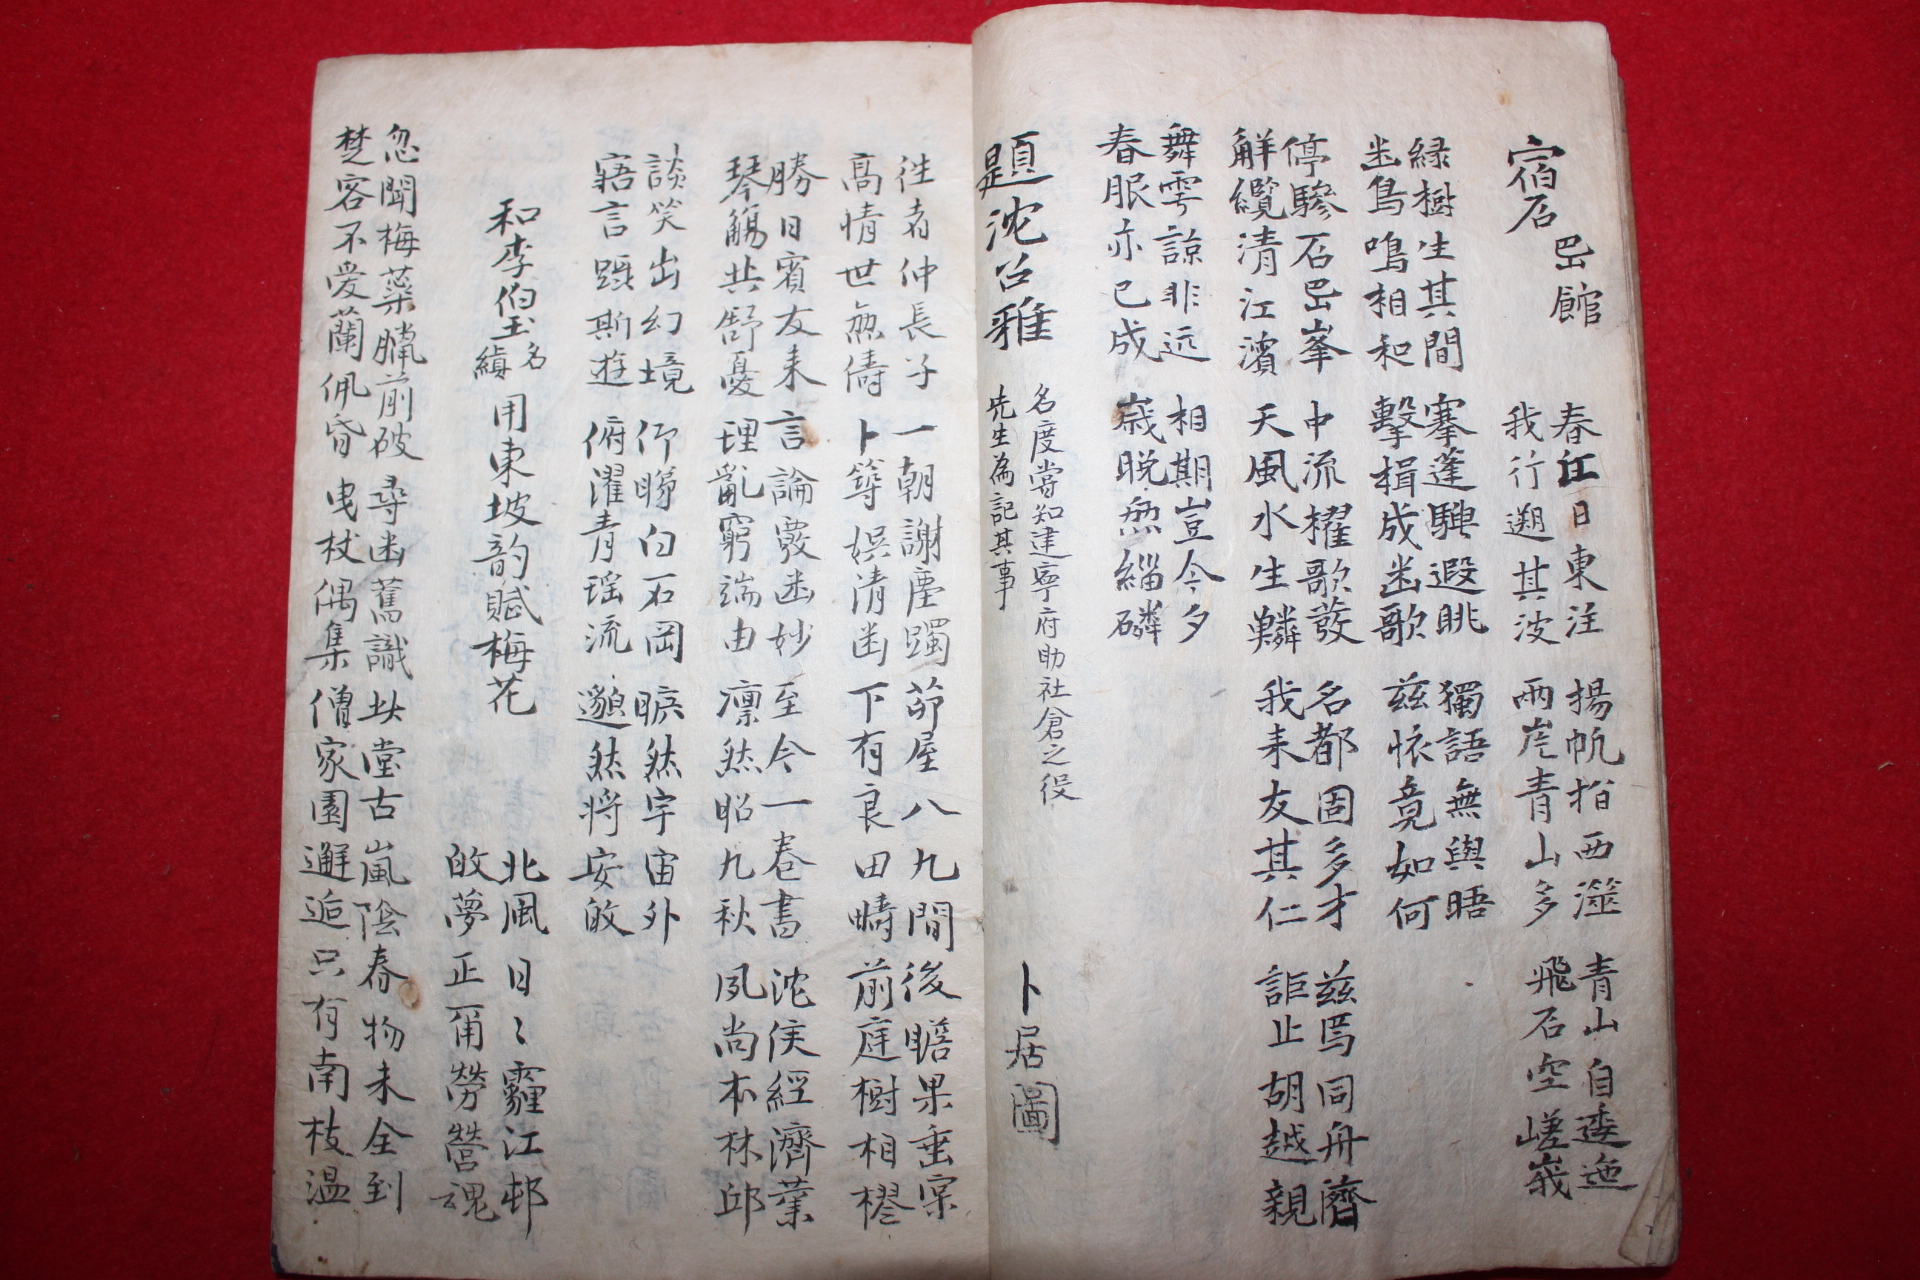 宿石嵒館
春江日東注
我行遡其波
揚帆指西澨
兩崖青山多
青山自逶迤
飛石空嵯峩
綠樹生其間
幽鳥鳴相和
搴蓬騁遐眺
擊楫成幽歌
獨語無與晤
茲懷竟如何
停驂石嵒峯
觧纜清江濱
中流櫂歌發
天風水生鱗
名都固多才
我来友其仁
茲焉同舟濟
詎止胡越親
舞雩諒非远
春服亦已成
相期豈今夕
歲晚無緇磷
題沈公雅
名度嘗知建寧府助社倉之役
先生為記其事
卜居圖
徃者仲長子
高情世無儔
一朝謝塵躅
卜築娯清幽
茆屋八九間
下有良田疇
後瞻果垂実
前庭樹相樛
勝日賓友来
琴觴共舒憂
言論覈幽妙
理亂窮端由
至今一卷書
凛然昭九秋
沈侯經濟業
夙尚本林邱
談笑出幻境
寤言躧斯遊
仰睇白石岡
俯濯青瑶流
曠然宇宙外
邈然将安攸
和李伯玉名縝用東坡韵賦梅花
北風日〻霾江邨
皈夢正爾勞營魂
忽聞梅蘂臘前破
楚客不爱蘭佩昏
尋幽舊識此堂古
曳杖偶集僧家園
嵐陰春物未全到
邂逅只有南枝温